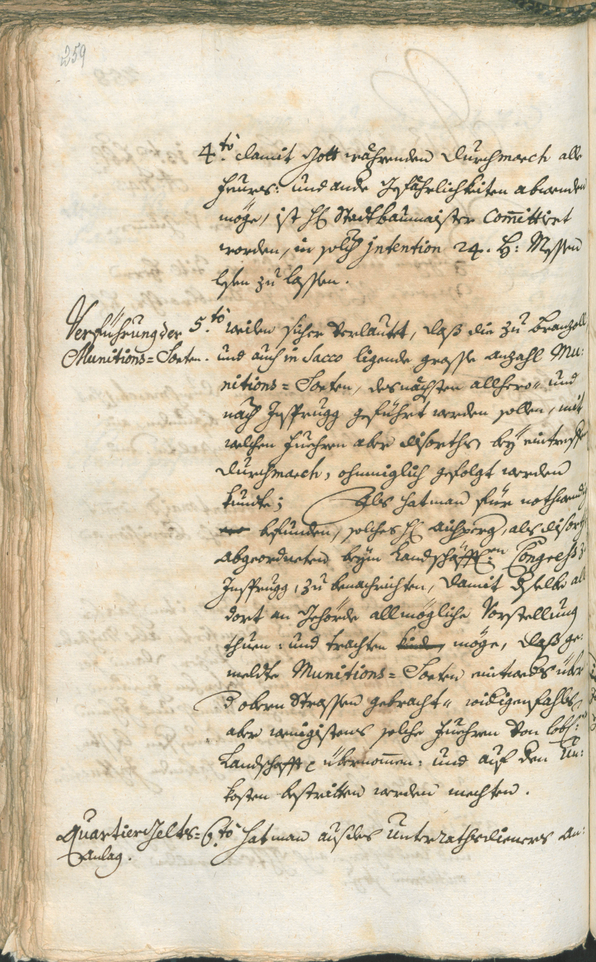 259
4.to damit Gott währenden Durchmarch alle
Feurs: und ande Gefährlichkeiten abwenden
möge, ist H: Stadtbaumaister Committirt
worden, in solch intention 24. H: Messen
lesen zu lassen.
Verführung der
Munitions=Sorten.
5.to weilen sicher verlautet, daß die zu
und auch in Sacco ligende grosse anzahl Mu:
nitions=Sorten, des nächsten allhero= und
nach Insprugg geführt werden sollen, mit
welchen Fuehren aber diserths bey
Durchmarch, ohnmiglich gefolgt werden
kundte; Als hat man für nothwendig
befunden, solches H: als
abgeordneten beym Landschäfftl.en Congress zu
Insprugg, zu benachrichten, damit Derselbe all
dort an Gehörde all mögliche Vorstellung
thuen: und trachten möge, daß ge:
meldte Munitions=Sorten eintweders über
obern Strassen gebracht= widrigenfahls
aber wenigistens solche Fuehren von lobl:
Landschafft übernomen: und auf den Un:
kosten bestritten werden mechten.
Quartier Gelts=
Anlag.
6.to hat man auf des Unterrathsdieners an: